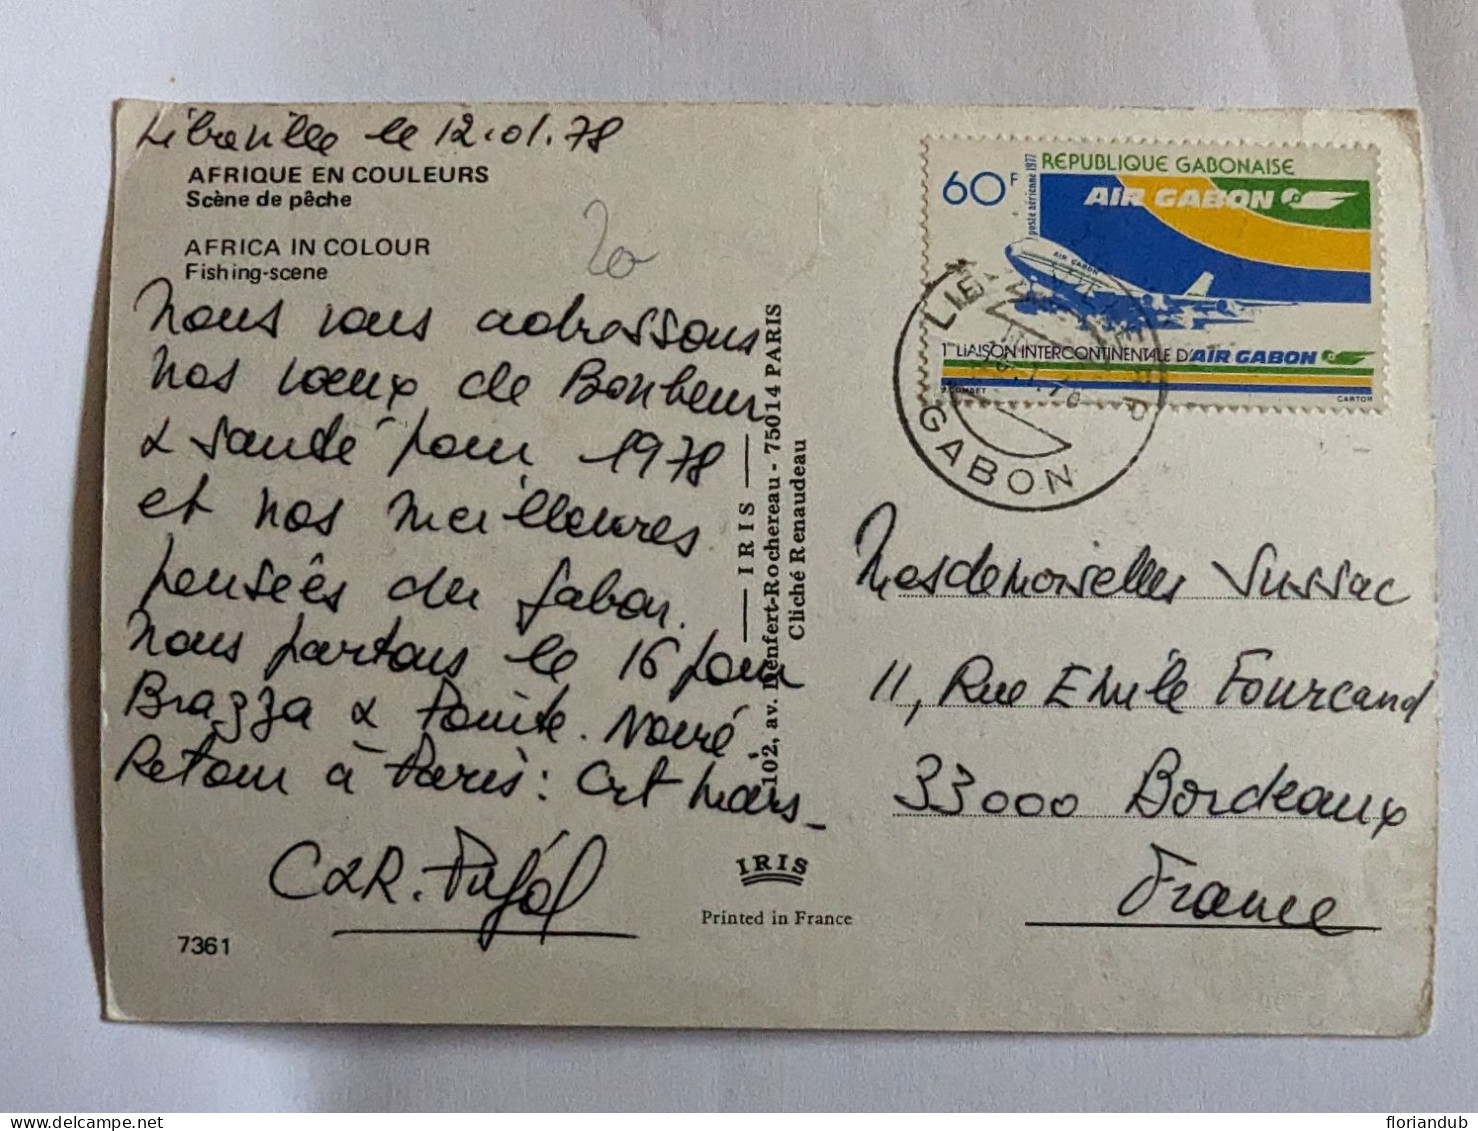 Libreville le 12.01.78
AFRIQUE EN COULEURS
Scène de pêche
AFRICA IN COLOUR
Fishing-scene
20
Nous vous adressons
nos voeux de Bonheur
& santé pour 1978
et nos meilleures
pensées du Gabon.
Nous partons le 16 pour
Brazza & Pointe. Noire
Retour à Paris : Ct mars_
C&R. Pujol
7361
IRIS
102, av. Denfert-Rochereau - 75014 PARIS
Cliché Renaudeau
IRIS
Printed in France
60F
poste aérienne 1977
REPUBLIQUE GABONAISE
AIR GABON
AIR GABON
1re LIAISON INTERCONTINENTALE D'AIR GABON
CARTOR
GABON
Mesdemoiselles Sussac
11, Rue Emile Fourcand
33000 Bordeaux
France
floriandub